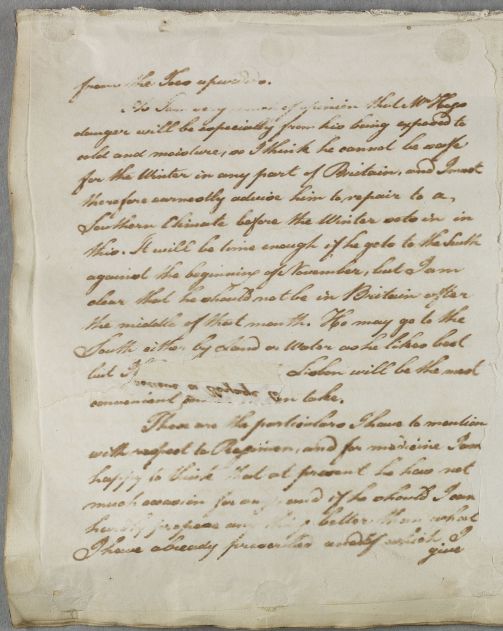 from the Toes upwards.
As I am very much of opinion that Mr Hays
danger will be especially from his being exposed to
cold and moisture, so I think he cannot be safe
for the Winter in any part of Britain, and I must
therefore earnestly advise him to repair to a
Southern Climate before the Winter sets in in
this. It will be time enough if he gets to the South
against the beginning of November, but I am
clear that he should not be in Britain after
the middle of that month. He may go to the
South either by Land or Water as he likes best
but I Lisbon will be the most
convenient can take.
These are the particulars I have to mention
with respect to Regimen, and for medicine I am
happy to think that at present he has not
much occasion for any and if he should I can
hardly propose any thing better than what
I have already prescribed and of which I
give